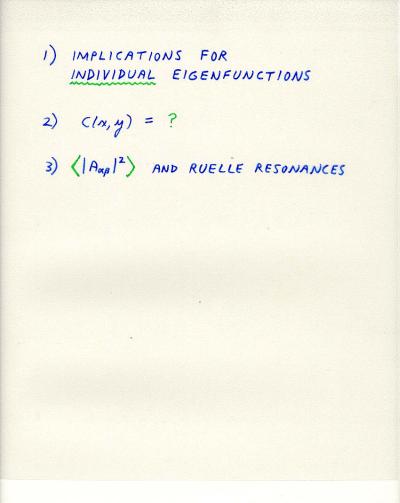 1) IMPLICATIONS FOR
INDIVIDUAL EIGENFUNCTIONS
2) C(x,y) = ?
3) ⟨|Aαβ|²⟩ AND RUELLE RESONANCES